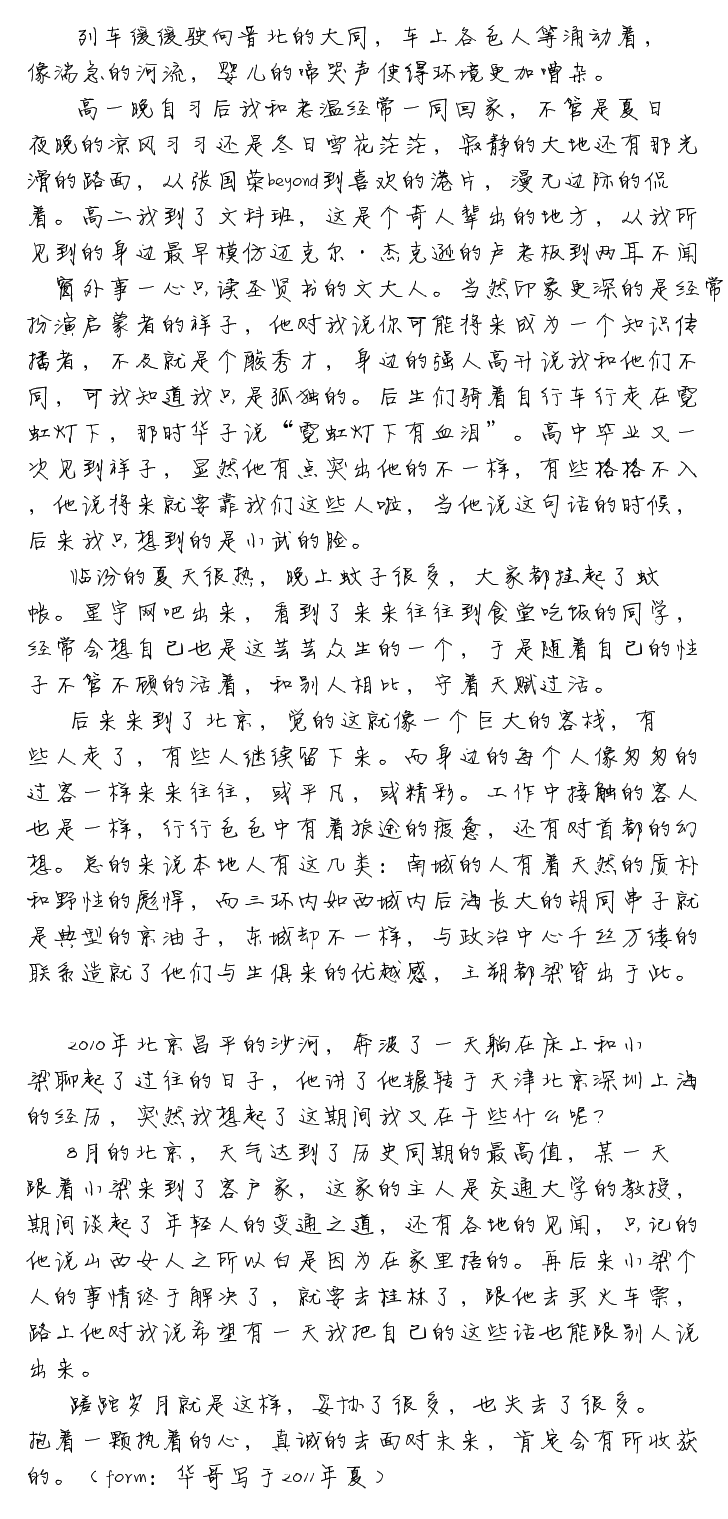 列车缓缓驶向晋北的大同，车上各色人等涌动着，
像湍急的河流，婴儿的啼哭声使得环境更加嘈杂。
高一晚自习后我和老温经常一同回家，不管是夏日
夜晚的凉风习习还是冬日雪花茫茫，寂静的大地还有那光
滑的路面，从张国荣beyond到喜欢的港片，漫无边际的侃
着。高二我到了文科班，这是个奇人辈出的地方，从我所
见到的身边最早模仿迈克尔·杰克逊的卢老板到两耳不闻
窗外事一心只读圣贤书的文大人。当然印象更深的是经常
扮演启蒙者的祥子，他对我说你可能将来成为一个知识传
播者，不及就是个酸秀才，身边的强人高升说我和他们不
同，可我知道我只是孤独的。后生们骑着自行车行走在霓
虹灯下，那时华子说“霓虹灯下有血泪”。高中毕业又一
次见到祥子，显然他有点突出他的不一样，有些格格不入
，他说将来就要靠我们这些人啦，当他说这句话的时候，
后来我只想到的是小武的脸。
临汾的夏天很热，晚上蚊子很多，大家都挂起了蚊
帐。星宇网吧出来，看到了来来往往到食堂吃饭的同学，
经常会想自己也是这芸芸众生的一个，于是随着自己的性
子不管不顾的活着，和别人相比，守着天赋过活。
后来来到了北京，觉的这就像一个巨大的客栈，有
些人走了，有些人继续留下来。而身边的每个人像匆匆的
过客一样来来往往，或平凡，或精彩。工作中接触的客人
也是一样，行行色色中有着旅途的疲惫，还有对首都的幻
想。总的来说本地人有这几类：南城的人有着天然的质朴
和野性的彪悍，而三环内如西城内后海长大的胡同串子就
是典型的京油子，东城却不一样，与政治中心千丝万缕的
联系造就了他们与生俱来的优越感，王朔都梁皆出于此。
2010年北京昌平的沙河，奔波了一天躺在床上和小
梁聊起了过往的日子，他讲了他辗转于天津北京深圳上海
的经历，突然我想起了这期间我又在干些什么呢？
8月的北京，天气达到了历史同期的最高值，某一天
跟着小梁来到了客户家，这家的主人是交通大学的教授，
期间谈起了年轻人的变通之道，还有各地的见闻，只记的
他说山西女人之所以白是因为在家里捂的。再后来小梁个
人的事情终于解决了，就要去桂林了，跟他去买火车票，
路上他对我说希望有一天我把自己的这些话也能跟别人说
出来。
蹉跎岁月就是这样，妥协了很多，也失去了很多。
抱着一颗执着的心，真诚的去面对未来，肯定会有所收获
的。（form：华哥写于2011年夏）